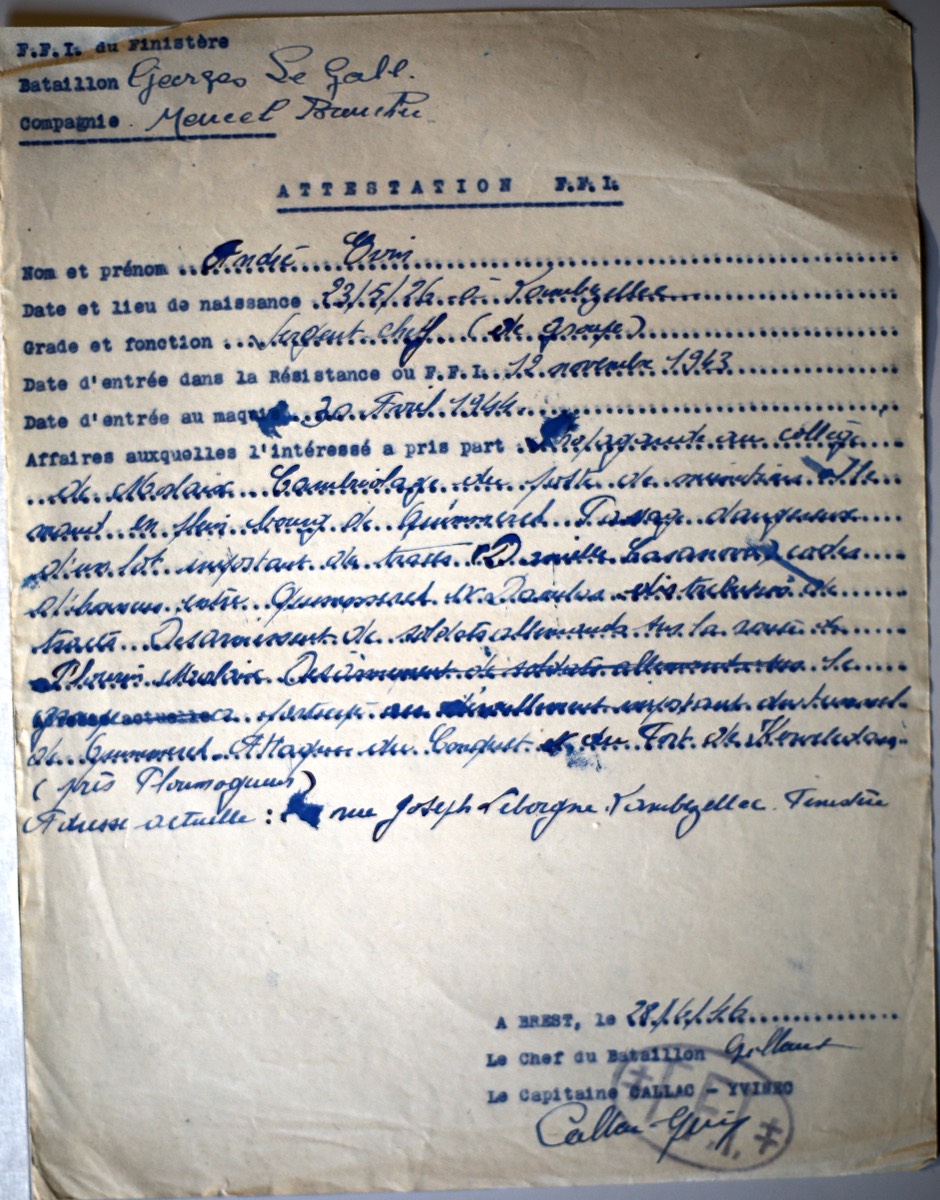 F.F.I. du Finistère
Bataillon Georges Le Gall.
Compagnie. Marcel
ATTESTATION F.F.I.
Nom et prénom .. André
Date et lieu de naissance . 23/5/26 à Lambézellec
Grade et fonction ... Sergent chef (de groupe)
Date d'entrée dans la Résistance ou F.F.I. 12 novembre 1943
Date d'entrée au maquis .. 20 Avril 1944
Affaires auxquelles l'intéressé a pris part : Propagande au collège
de Morlaix Cambriolage du poste de munitions Alle
mand en plein bourg de Guimmeret Passage dangereux
d'un lot important de tracts (Danielle Casanova)
entre Quimmeret et Daoulas distribution de
tracts Desarmement de soldats allemands sur la route de
Plourin Morlaix Desarmement de soldats allemands Le
groupe actuelle a participé au déraillement important du tunnel
de Guimmeret Attaque du Conquet et du Fort de
(près Ploumoguer)
Adresse actuelle : rue Joseph Leborgne. Lambézellec. Finistère
A BREST, le 28/4/46
Le Chef du Bataillon
Le Capitaine CALLAC - YVINEC
Callac